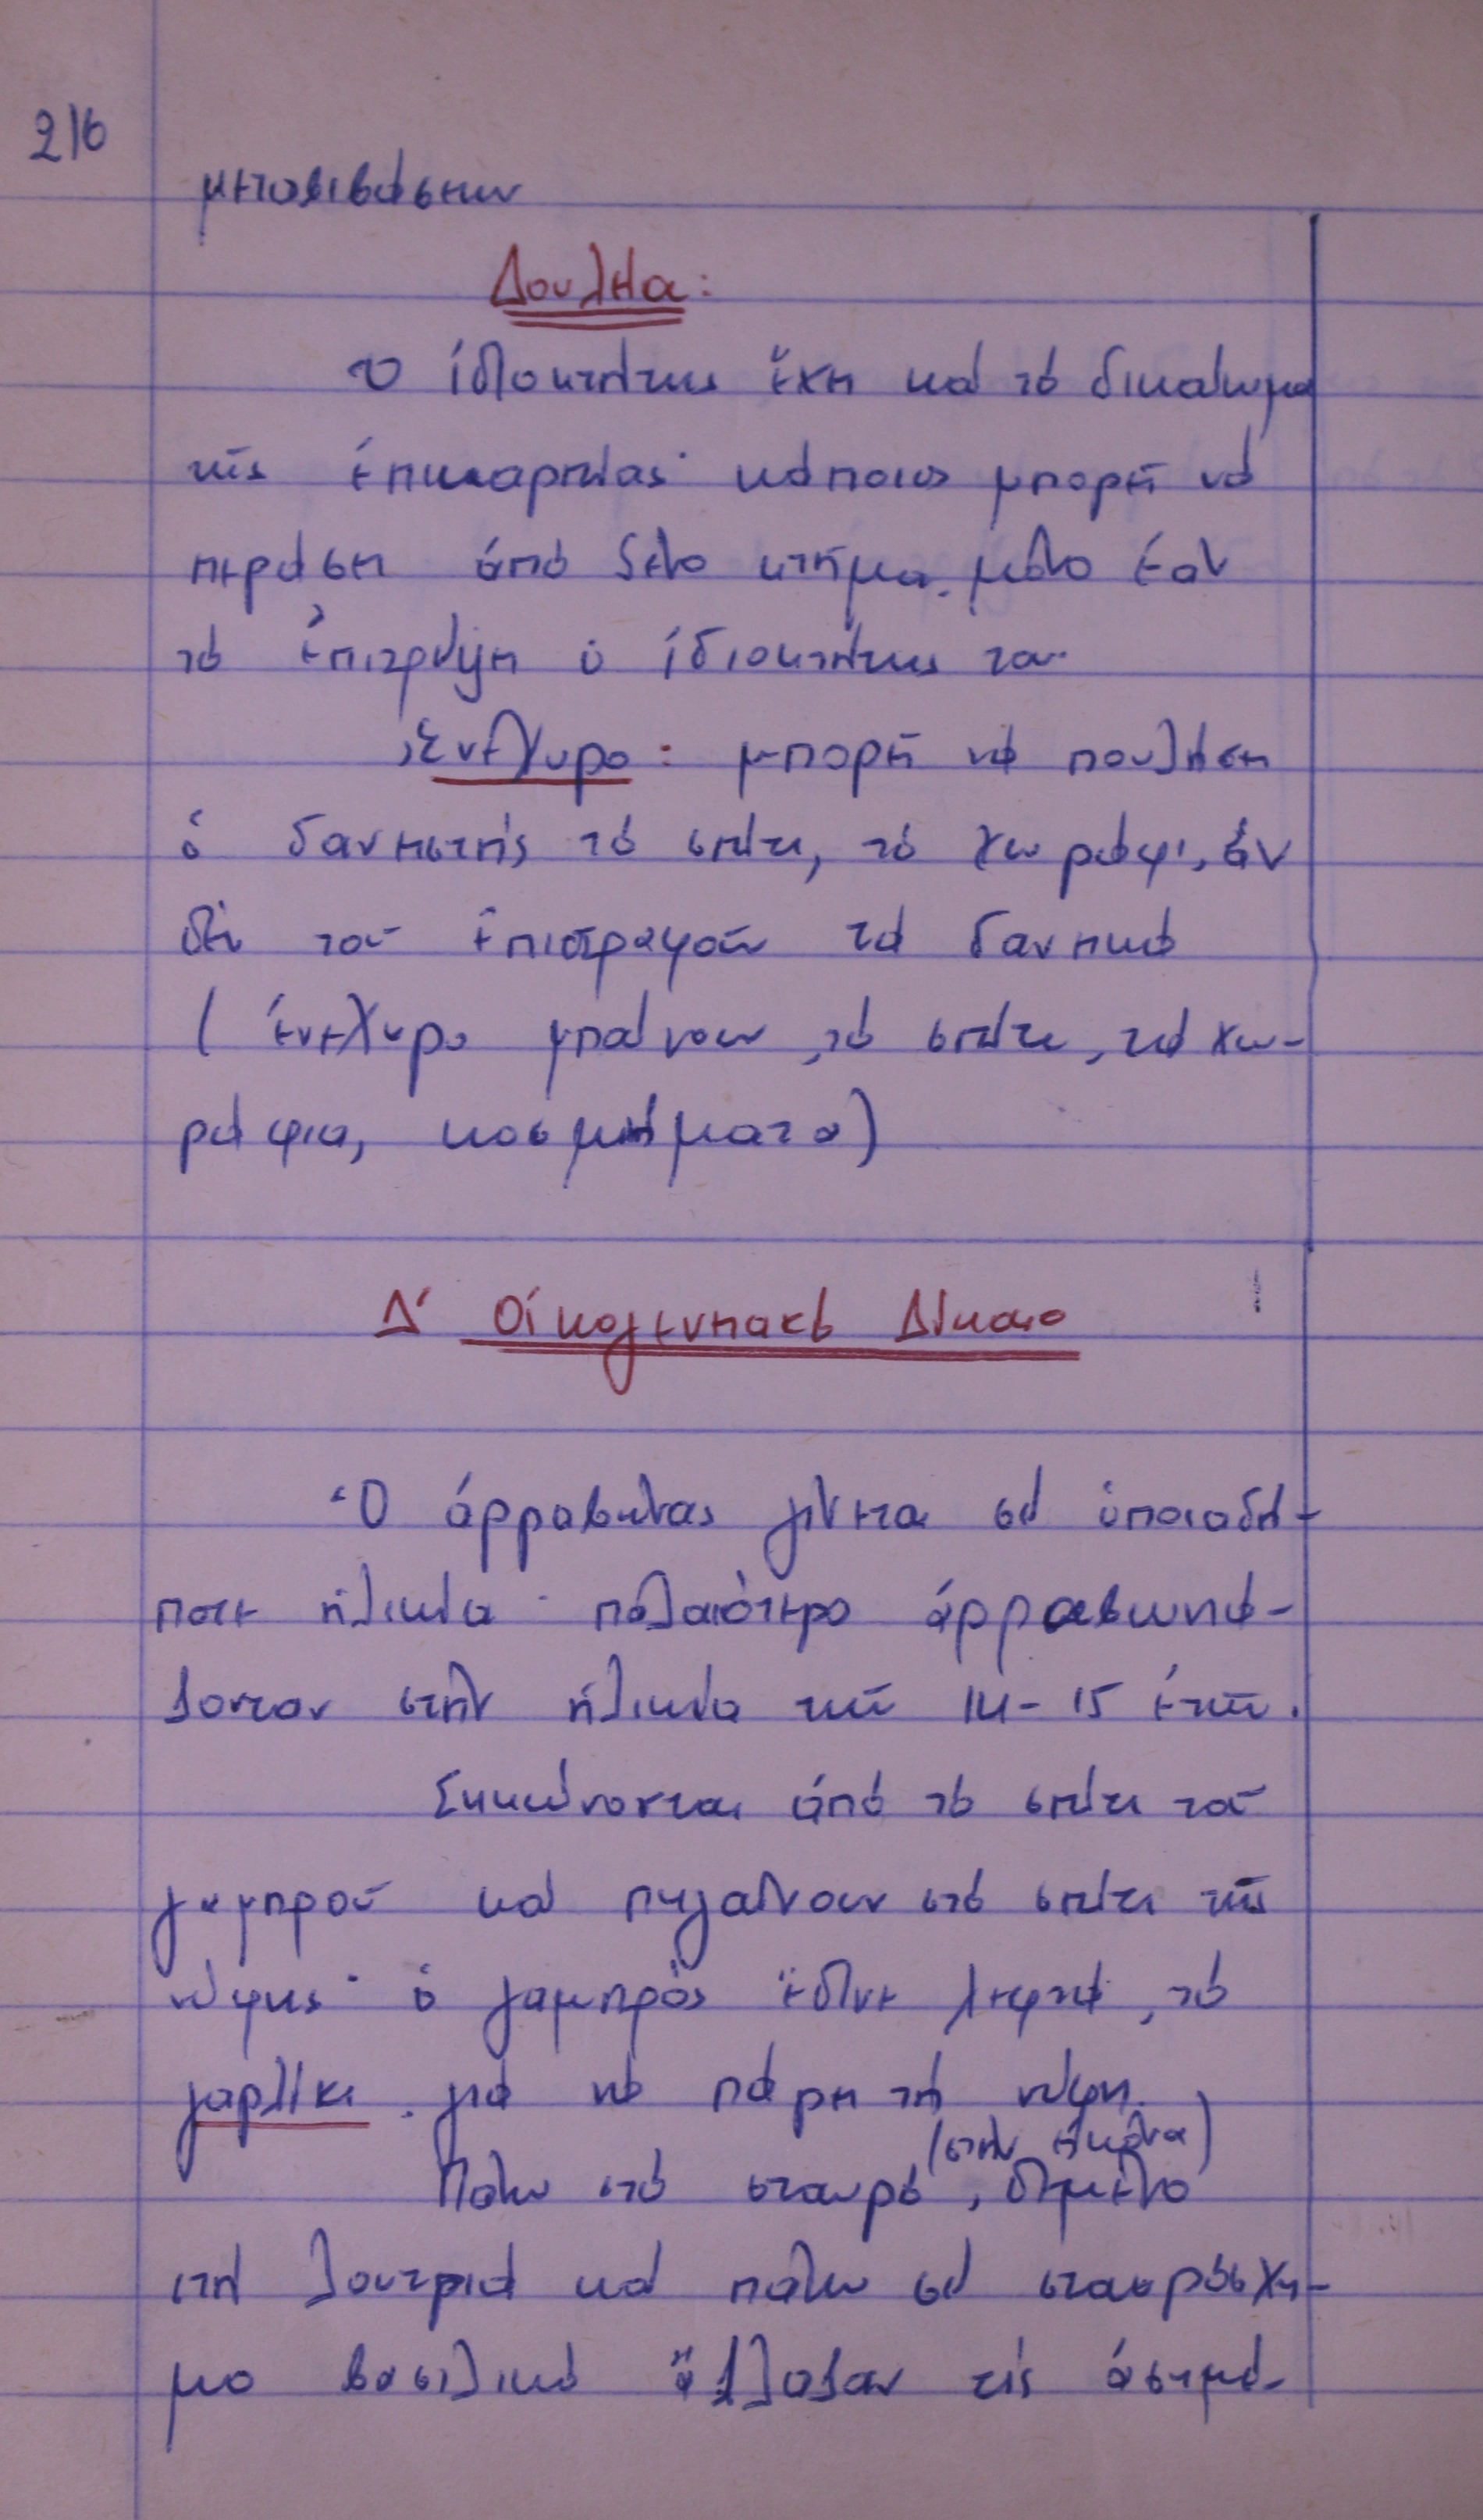 216
μεταβιβάσεων
Δουλεία:
Ὁ ἰδιοκτήτης ἔχει καί τό δικαίωμα
τῆς ἐπικαρπίας· κάποιος μπορεῖ νά
περάσει ἀπό ξένο κτῆμα, μόνο ἐάν
τό ἐπιτρέψει ὁ ἰδιοκτήτης του.
Ἐνέχυρο: μπορεῖ νά πουλήσει
ὁ δανειστής τό σπίτι, τό χωράφι, ἄν
δέν τοῦ ἐπιστραφοῦν τά δανεικά
(ἐνέχυρο μπαίνουν, τό σπίτι, τά χω-
ράφια, κοσμήματα)
Δ΄ Οἰκογενειακό Δίκαιο
Ὁ ἀρραβώνας γίνεται σέ ὁποιαδή-
ποτε ἡλικία· παλαιότερα ἀρραβωνιά-
ζονταν στήν ἡλικία τῶν 14-15 ἐτῶν.
Σηκώνονται ἀπό τό σπίτι τοῦ
γαμπροῦ καί πηγαίνουν στό σπίτι τῆς
νύφης· ὁ γαμπρός ἔδινε λεφτά, τό
γαρλίκι γιά νά πάρει τή νύφη.
(στήν εἰκόνα)
Πάνω στό σταυρό, δεμένο
στή λουτριά καί πάνω σέ σταυρόσχη-
μο βασιλικό ἄλλαζαν τίς ἀσημέ-